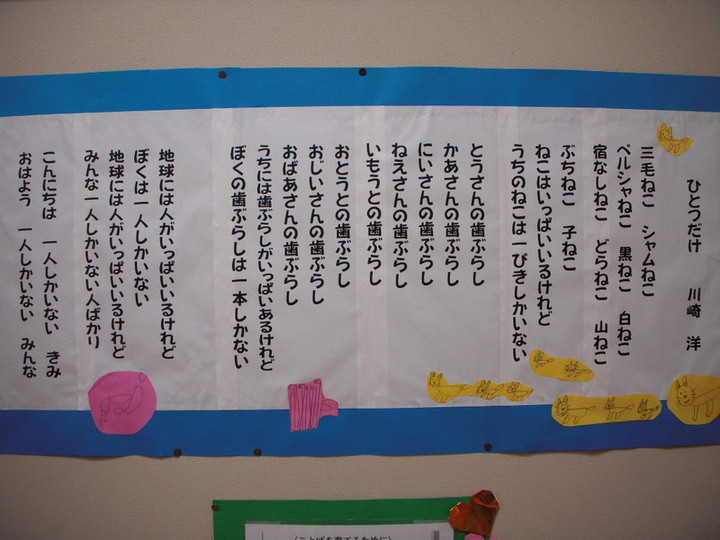 ひとつだけ　川崎　洋
三毛ねこ　シャムねこ
ペルシャねこ　黒ねこ　白ねこ
宿なしねこ　どらねこ　山ねこ
ぶちねこ　子ねこ
ねこはいっぱいいるけれど
うちのねこは一ぴきしかいない
とうさんの歯ぶらし
かあさんの歯ぶらし
にいさんの歯ぶらし
ねえさんの歯ぶらし
いもうとの歯ぶらし
おとうとの歯ぶらし
おじいさんの歯ぶらし
おばあさんの歯ぶらし
うちには歯ぶらしがいっぱいあるけれど
ぼくの歯ぶらしは一本しかない
地球には人がいっぱいいるけれど
ぼくは一人しかいない
地球には人がいっぱいいるけれど
みんな一人しかいない人ばかり
こんにちは　一人しかいない　きみ
おはよう　一人しかいない　みんな
（ことばを育てるために）